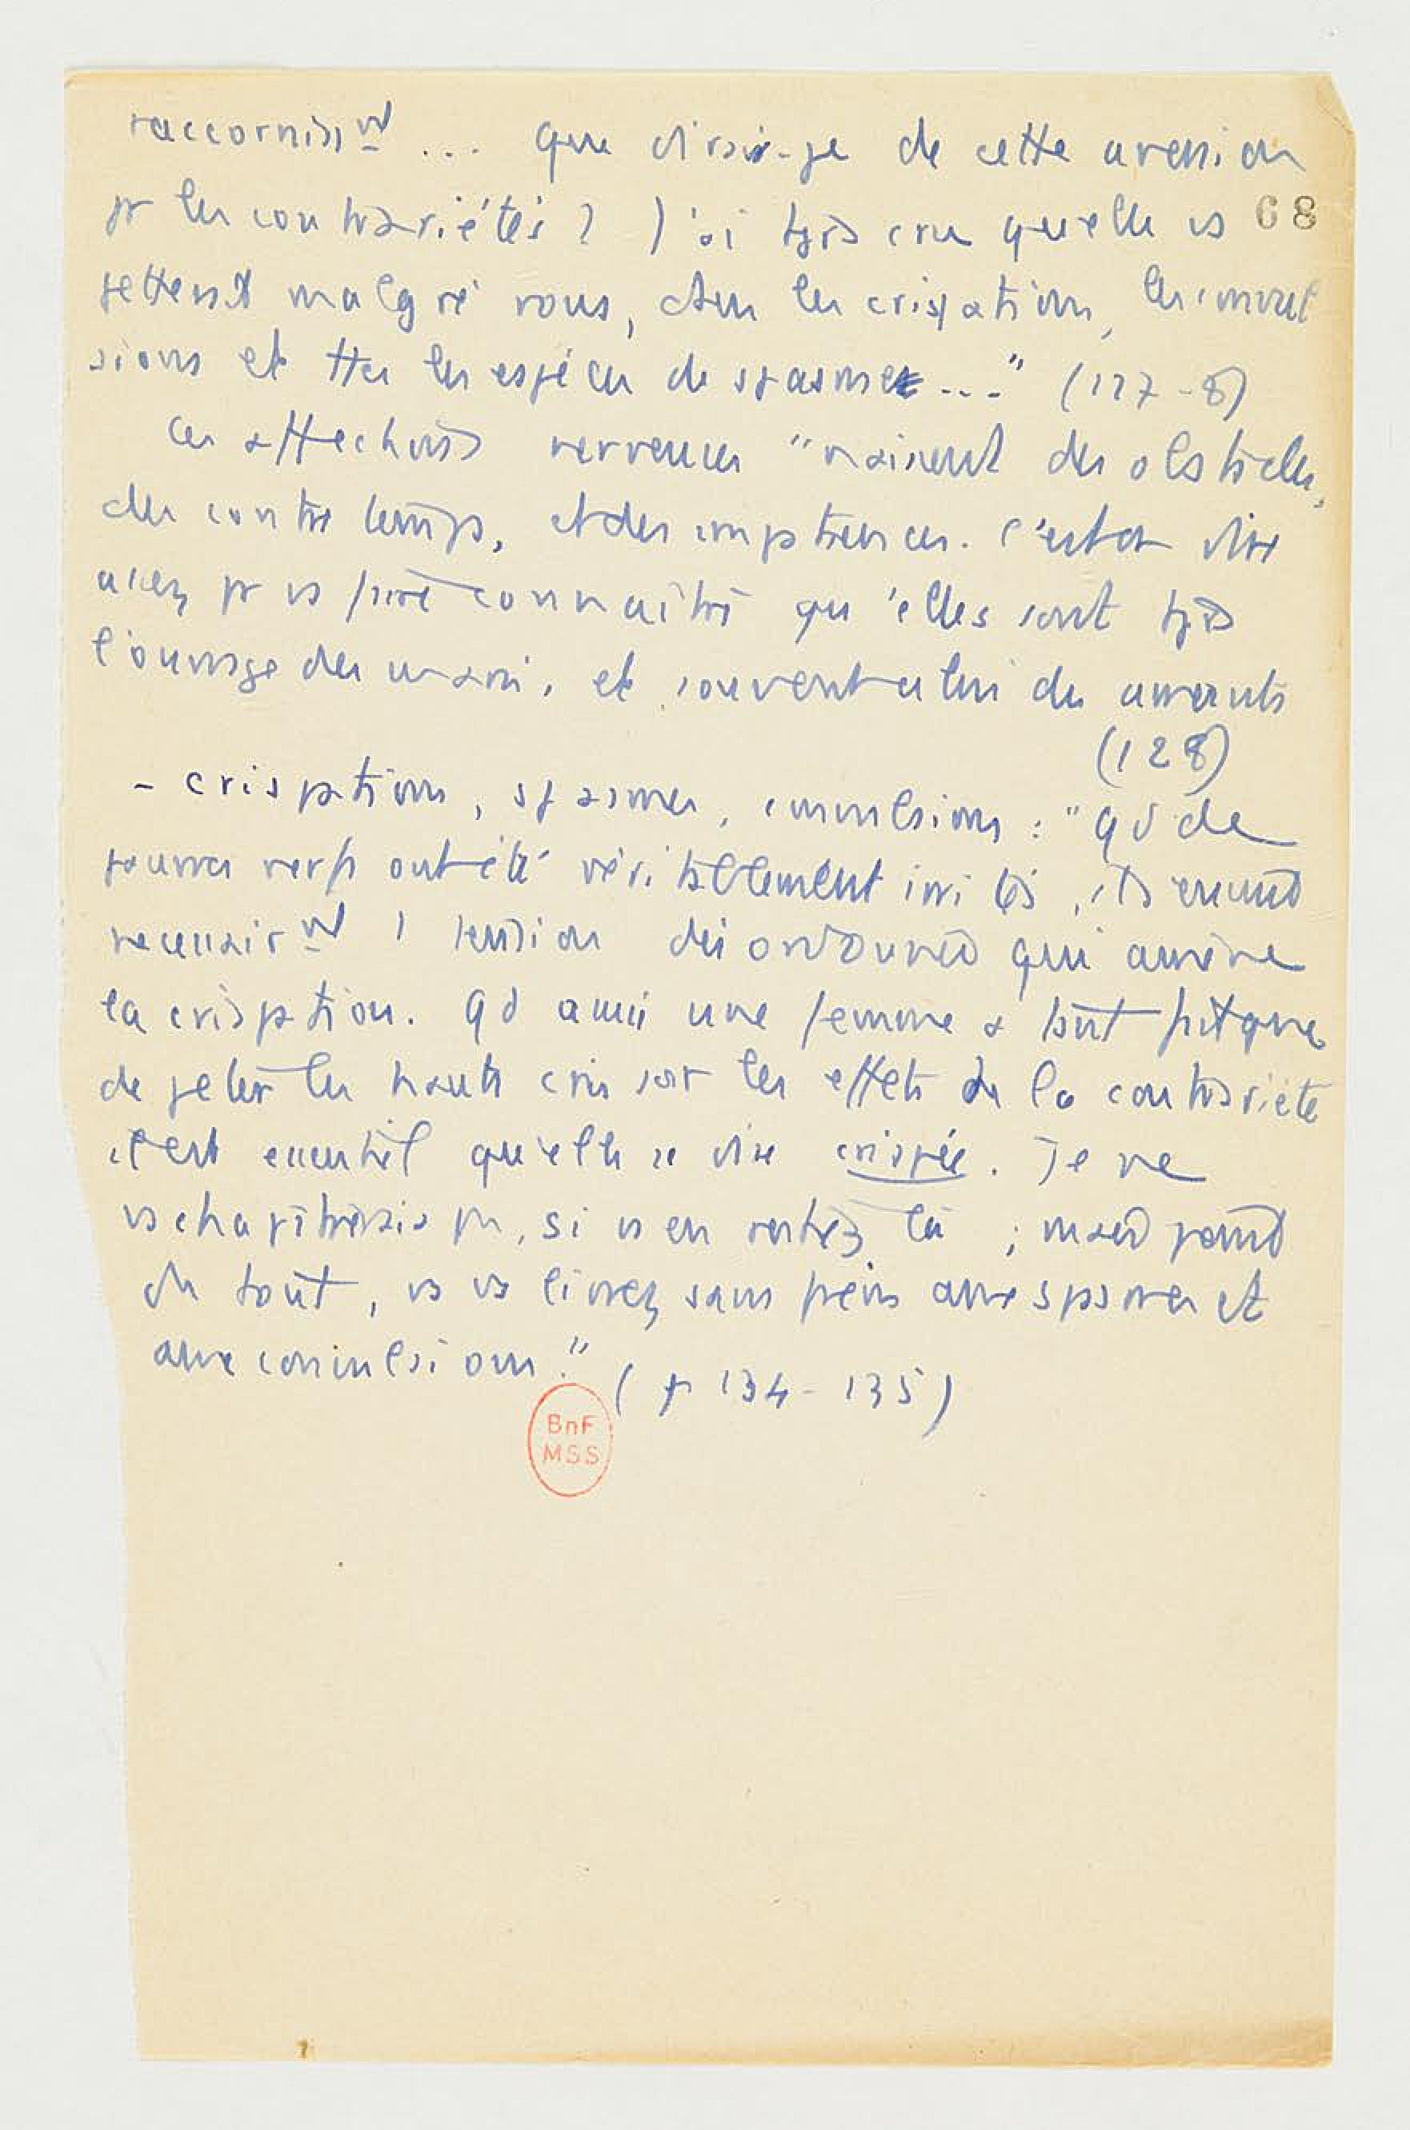 raccorniss^nt ... que dirai-je de cette aversion
pr les contrariétés ? J'ai tjrs cru qu'elle vs 68
jettent malgré vous, dans les crispations, les convul
sions et ttes les espèces de spasmes ..." (127-8)
Ces affections nerveuses "naissent des obstacles,
des contre temps, et des impatiences. C'est à dire
assez pr vs faire connaître qu'elles sont tjrs
l'ouvrage des maris, et souvent celui des amants
(128)
- crispations, spasmes, convulsions : "qd de
pauvres nerfs ont été véritablement irrités, ils
necessair^nt 1 tension désordonnée qui amène
la crispation. qd aussi une femme a tout
de jeter les hauts cris sur les effets de la contrariété
il est essentiel qu'elle se dise crispée. Je ne
vs chapitrerais pas, si vs en restiez là ; mais point
du tout, vs vs livrez sans frein aux spasmes et
aux convulsions." (p 134-135)
BnF
MSS